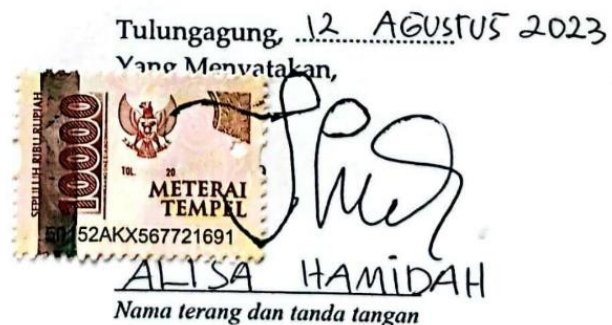 Tulungagung, 12 AGUSTUS 2023
Yang Menyatakan,
SEPULUH RIBU RUPIAH
10000
TGL. 20
METERAI
TEMPEL
52AKX567721691
ALISA HAMIDAH
Nama terang dan tanda tangan